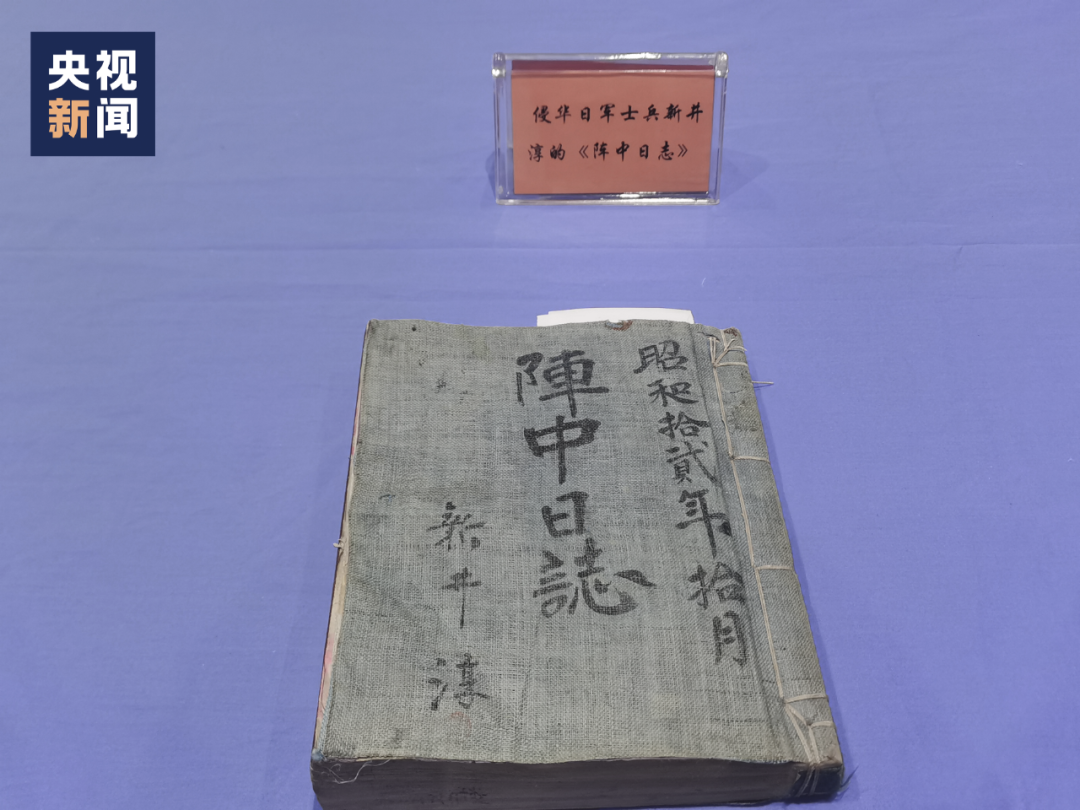 央视
新闻
侵华日军士兵新井
淳的《阵中日志》
昭和拾貳年拾月
陣中日誌
新井淳